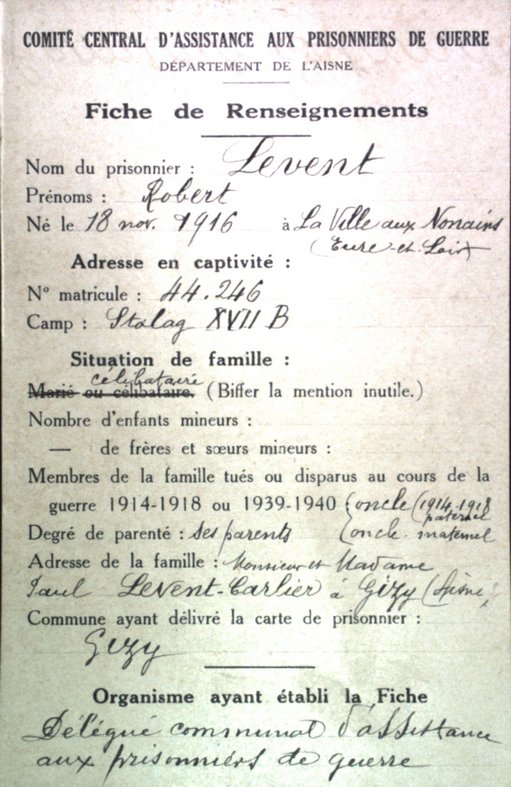 COMITÉ CENTRAL D'ASSISTANCE AUX PRISONNIERS DE GUERRE
DÉPARTEMENT DE L'AISNE
Fiche de Renseignements
Nom du prisonnier : Levent
Prénoms : Robert
Né le 18 nov. 1916 à La Ville aux Nonains
(Eure et Loir
Adresse en captivité :
N° matricule : 44.246
Camp : Stalag XVII B
Situation de famille :
célibataire
Marié ou célibataire. (Biffer la mention inutile.)
Nombre d'enfants mineurs :
— de frères et sœurs mineurs :
Membres de la famille tués ou disparus au cours de la
guerre 1914-1918 ou 1939-1940 (oncle (1914-1918
paternel
Degré de parenté : ses parents (oncle maternel
Adresse de la famille : Monsieur et Madame
Paul Levent-Carlier à Gizy (Aisne)
Commune ayant délivré la carte de prisonnier :
Gizy
Organisme ayant établi la Fiche
Délégué communal d'assistance
aux prisonniers de guerre